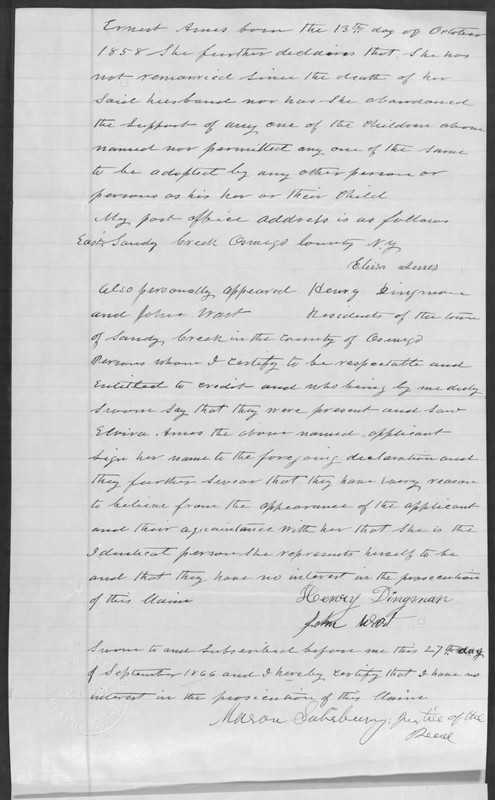 Ernest Ames born the 13th day of October
1858 She further declares that She has
not remarried Since the death of her
Said husband nor has She abandoned
the Support of any one of the Children above
named nor permitted any one of the Same
to be adopted by any other person or
persons as his her or their Child
My post office address is as follows
East Sandy Creek Oswego County N.Y.
Ames
Also personally appeared Henry Dingman
and John Wart Residents of the town
of Sandy Creek in the County of Oswego
Persons whom I certify to be respectable and
Entitled to credit and who being by me duly
Sworn Say that they were present and Saw
Elvira Ames the above named applicant
Sign her name to the foregoing declaration and
they further Swear that they have every reason
to believe from the appearance of the applicant
and their acquaintance with her that She is the
Identical person She represents herself to be
and that they have no interest in the prosecution
of this Claim Henry Dingman
John Wart
Sworn to and Subscribed before me this 27th day
of September 1866 and I hereby Certify that I have no
interest in the prosecution of this Claim
Mason Salisbury, Justice of the
Peace